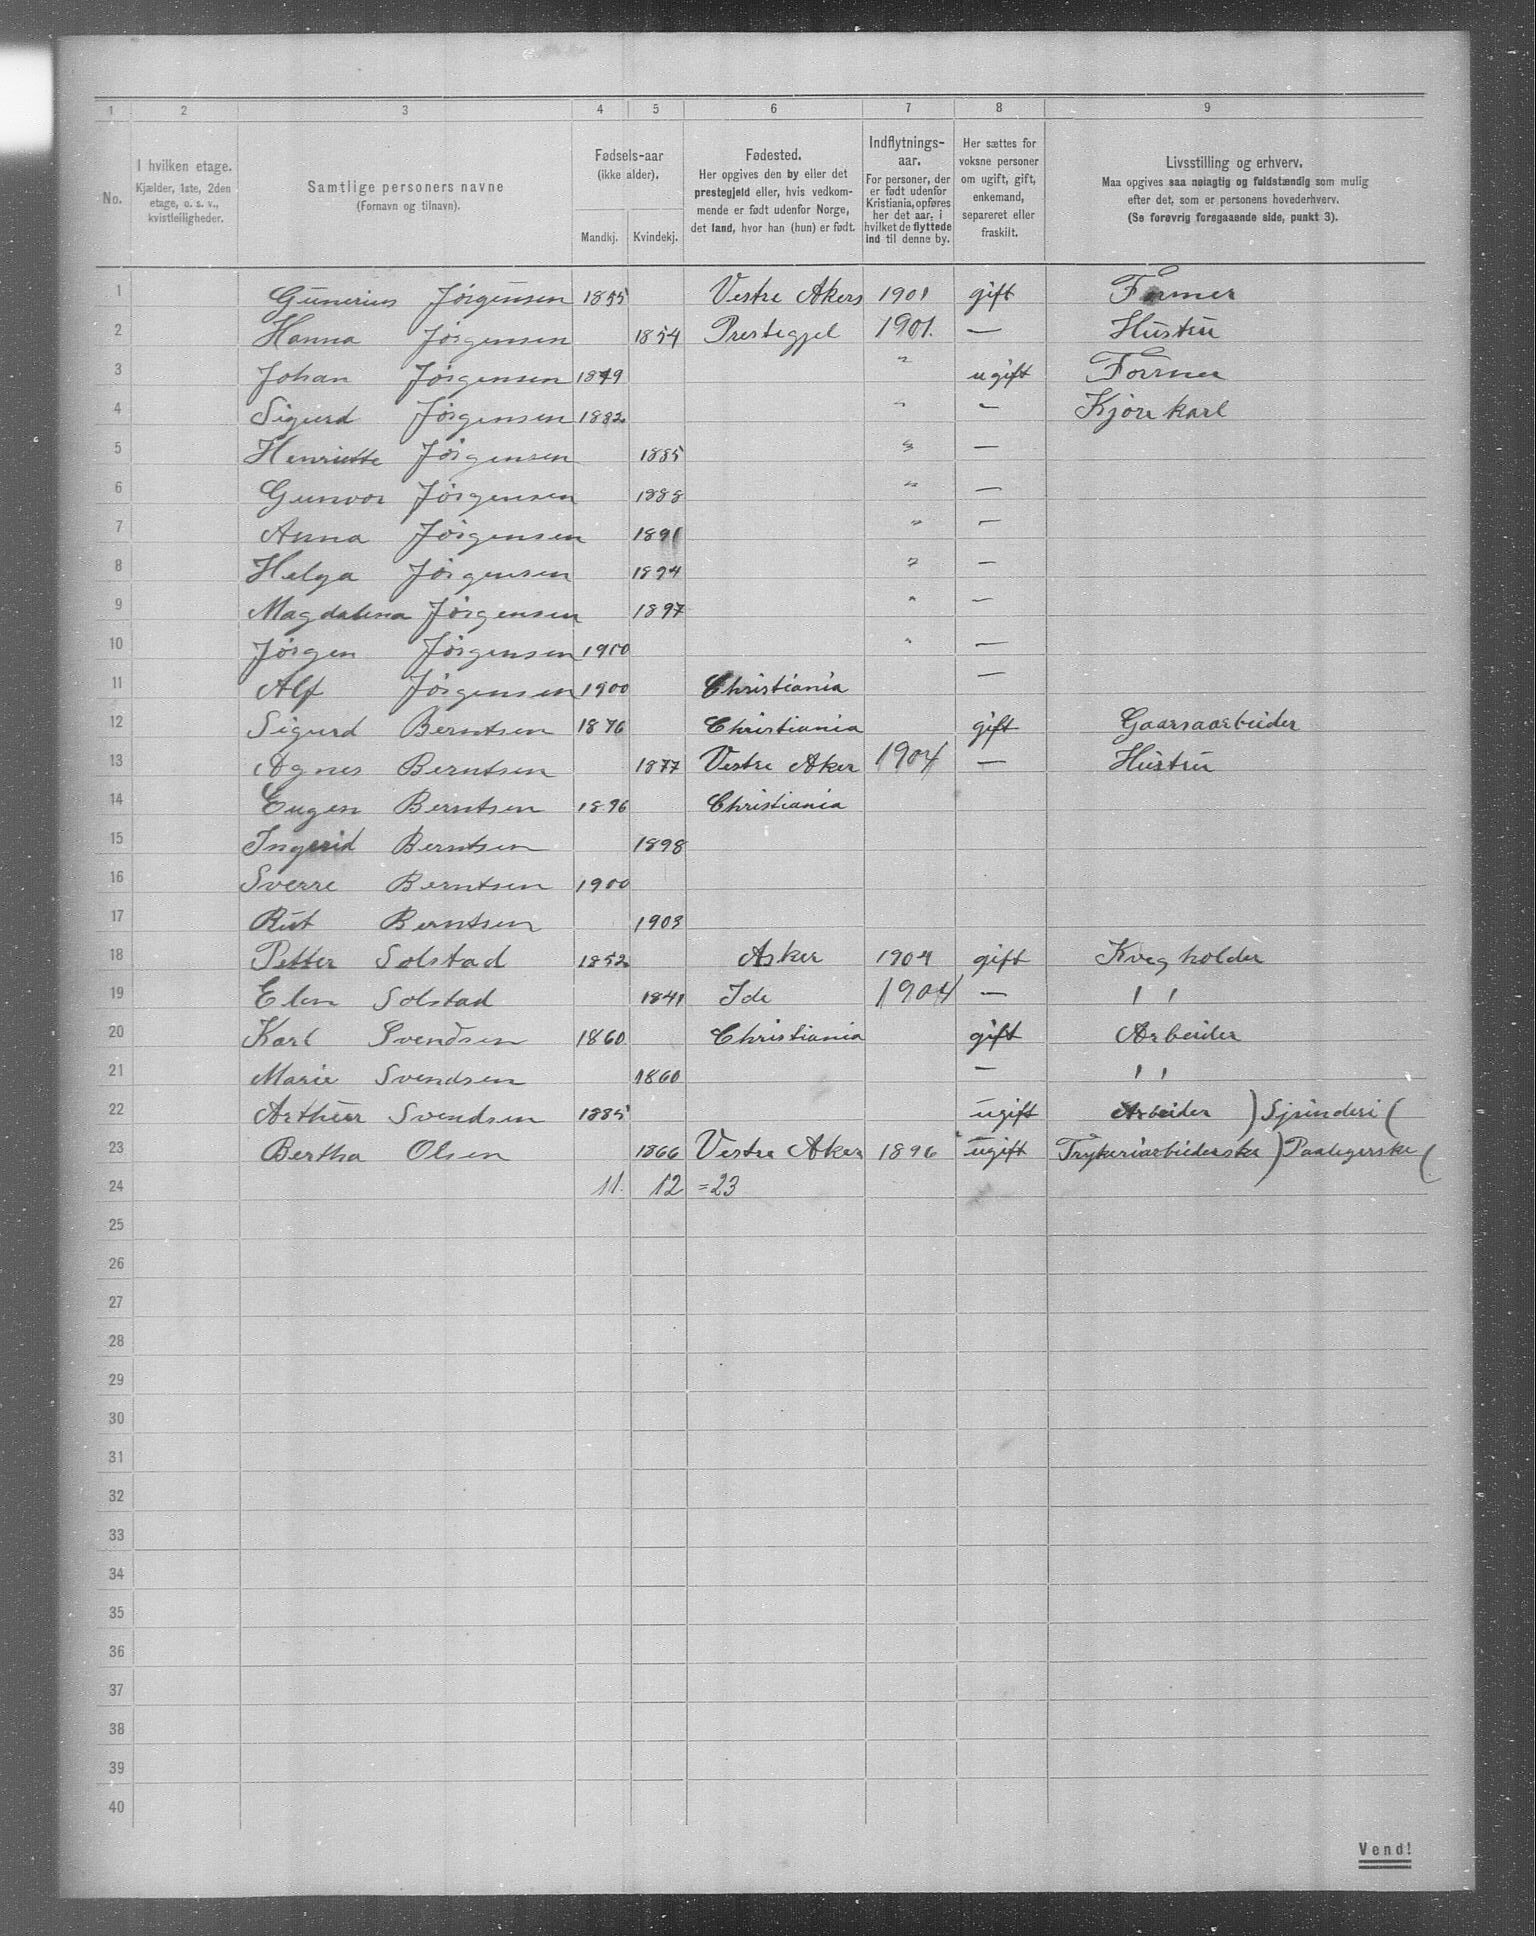 1 2 3 4 5 6 7 8 9
No.
I hvilken etage.
Kjælder, 1ste, 2den
etage, o. s. v.,
kvistleiligheder.
Samtlige personers navne
(Fornavn og tilnavn).
Fødsels-aar
(ikke alder).
Mandkj. Kvindekj.
Fødested.
Her opgives den by eller det
prestegjeld eller, hvis vedkom-
mende er født udenfor Norge,
det land, hvor han (hun) er født.
Indflytnings-
aar.
For personer, der
er født udenfor
Kristiania, opføres
her det aar, i
hvilket de flyttede
ind til denne by.
Her sættes for
voksne personer
om ugift, gift,
enkemand,
separeret eller
fraskilt.
Livsstilling og erhverv.
Maa opgives saa nøiagtig og fuldstændig som mulig
efter det, som er personens hovederhverv.
(Se forøvrig foregaaende side, punkt 3).
1 Gunerius Jörgensen 1855 Vestre Akers 1901 gift Former
2 Hanna Jörgensen 1854 Prestegjel 1901. — Hustru
3 Johan Jörgensen 1879 " ugift Former
4 Sigurd Jörgensen 1882 " — Kjöre karl
5 Henriette Jörgensen 1885 " —
6 Gunvor Jörgensen 1888 " —
7 Anna Jörgensen 1891 " —
8 Helga Jörgensen 1894 " —
9 Magdalena Jörgensen 1897 " —
10 Jörgen Jörgensen 1900 " —
11 Alf Jörgensen 1900 Christiania —
12 Sigurd Berntsen 1876 Christiania gift Gaarsaarbeider
13 Agnes Berntsen 1877 Vestre Aker 1904 — Hustru
14 Eugen Berntsen 1896 Christiania
15 Ingerid Berntsen 1898
16 Sverre Berntsen 1900
17 Rut Berntsen 1903
18 Petter Solstad 1852 Asker 1904 gift Kvegholder
19 Elen Solstad 1841 Ide 1904 — " "
20 Karl Svendsen 1860 Christiania gift Arbeider
21 Marie Svendsen 1860 — " "
22 Arthur Svendsen 1885 ugift Arbeider ) Spinderi (
23 Bertha Olsen 1866 Vestre Aker 1896 ugift Trykeriarbeiderske ) Paalegerske (
24 11. 12 = 23
25
26
27
28
29
30
31
32
33
34
35
36
37
38
39
40
Vend!